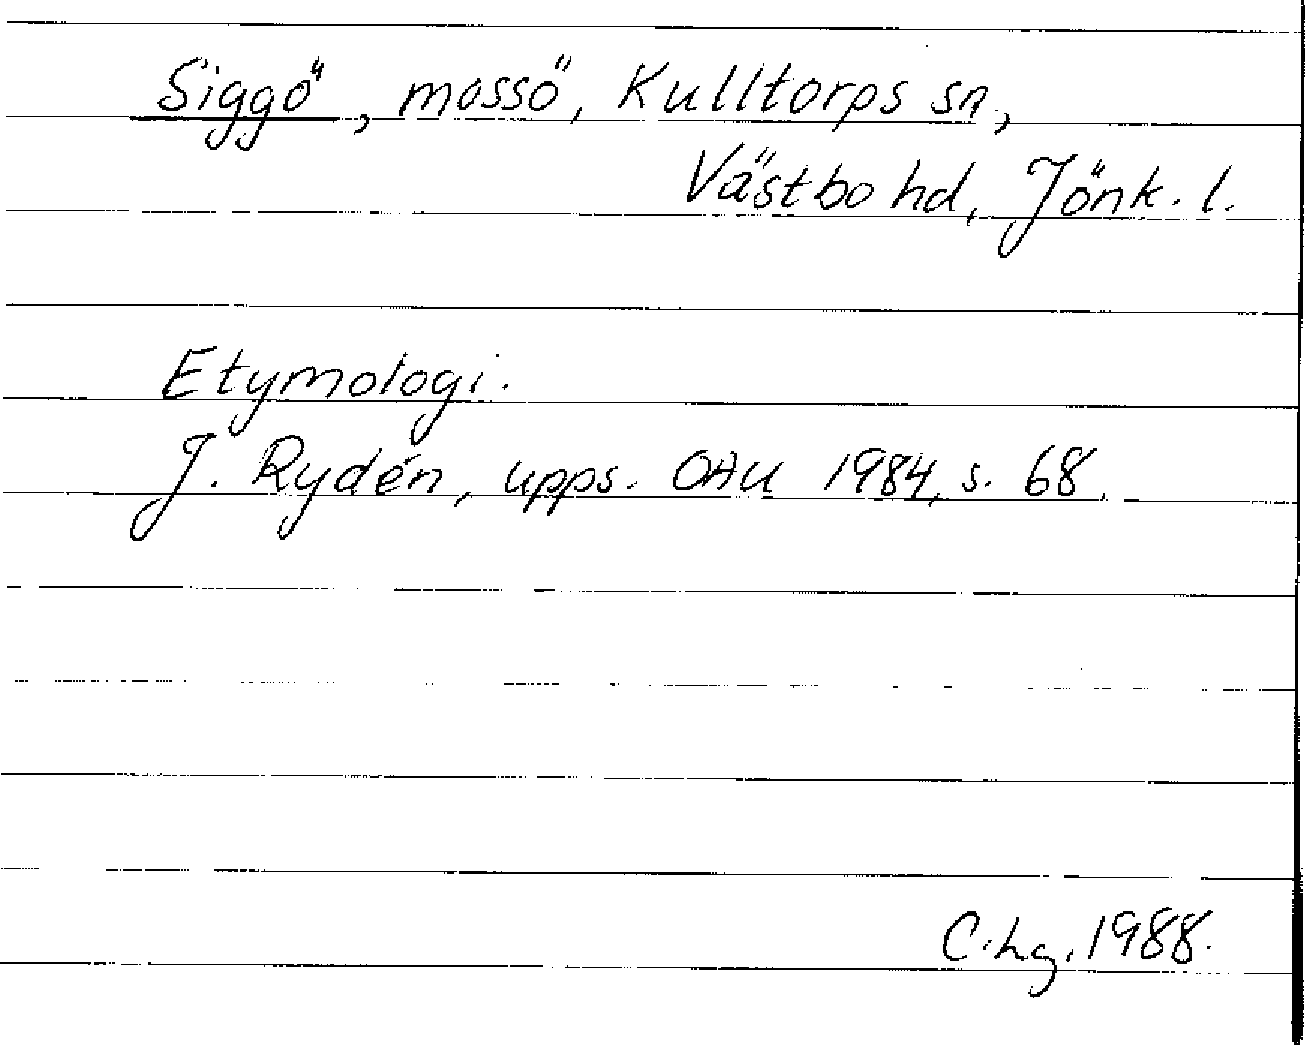 Siggö, mossö, Kulltorps sn,
Västbo hd, Jönk. l.
Etymologi.
J. Rydén, upps. OAU 1984, s. 68.
C.Lg. 1988.